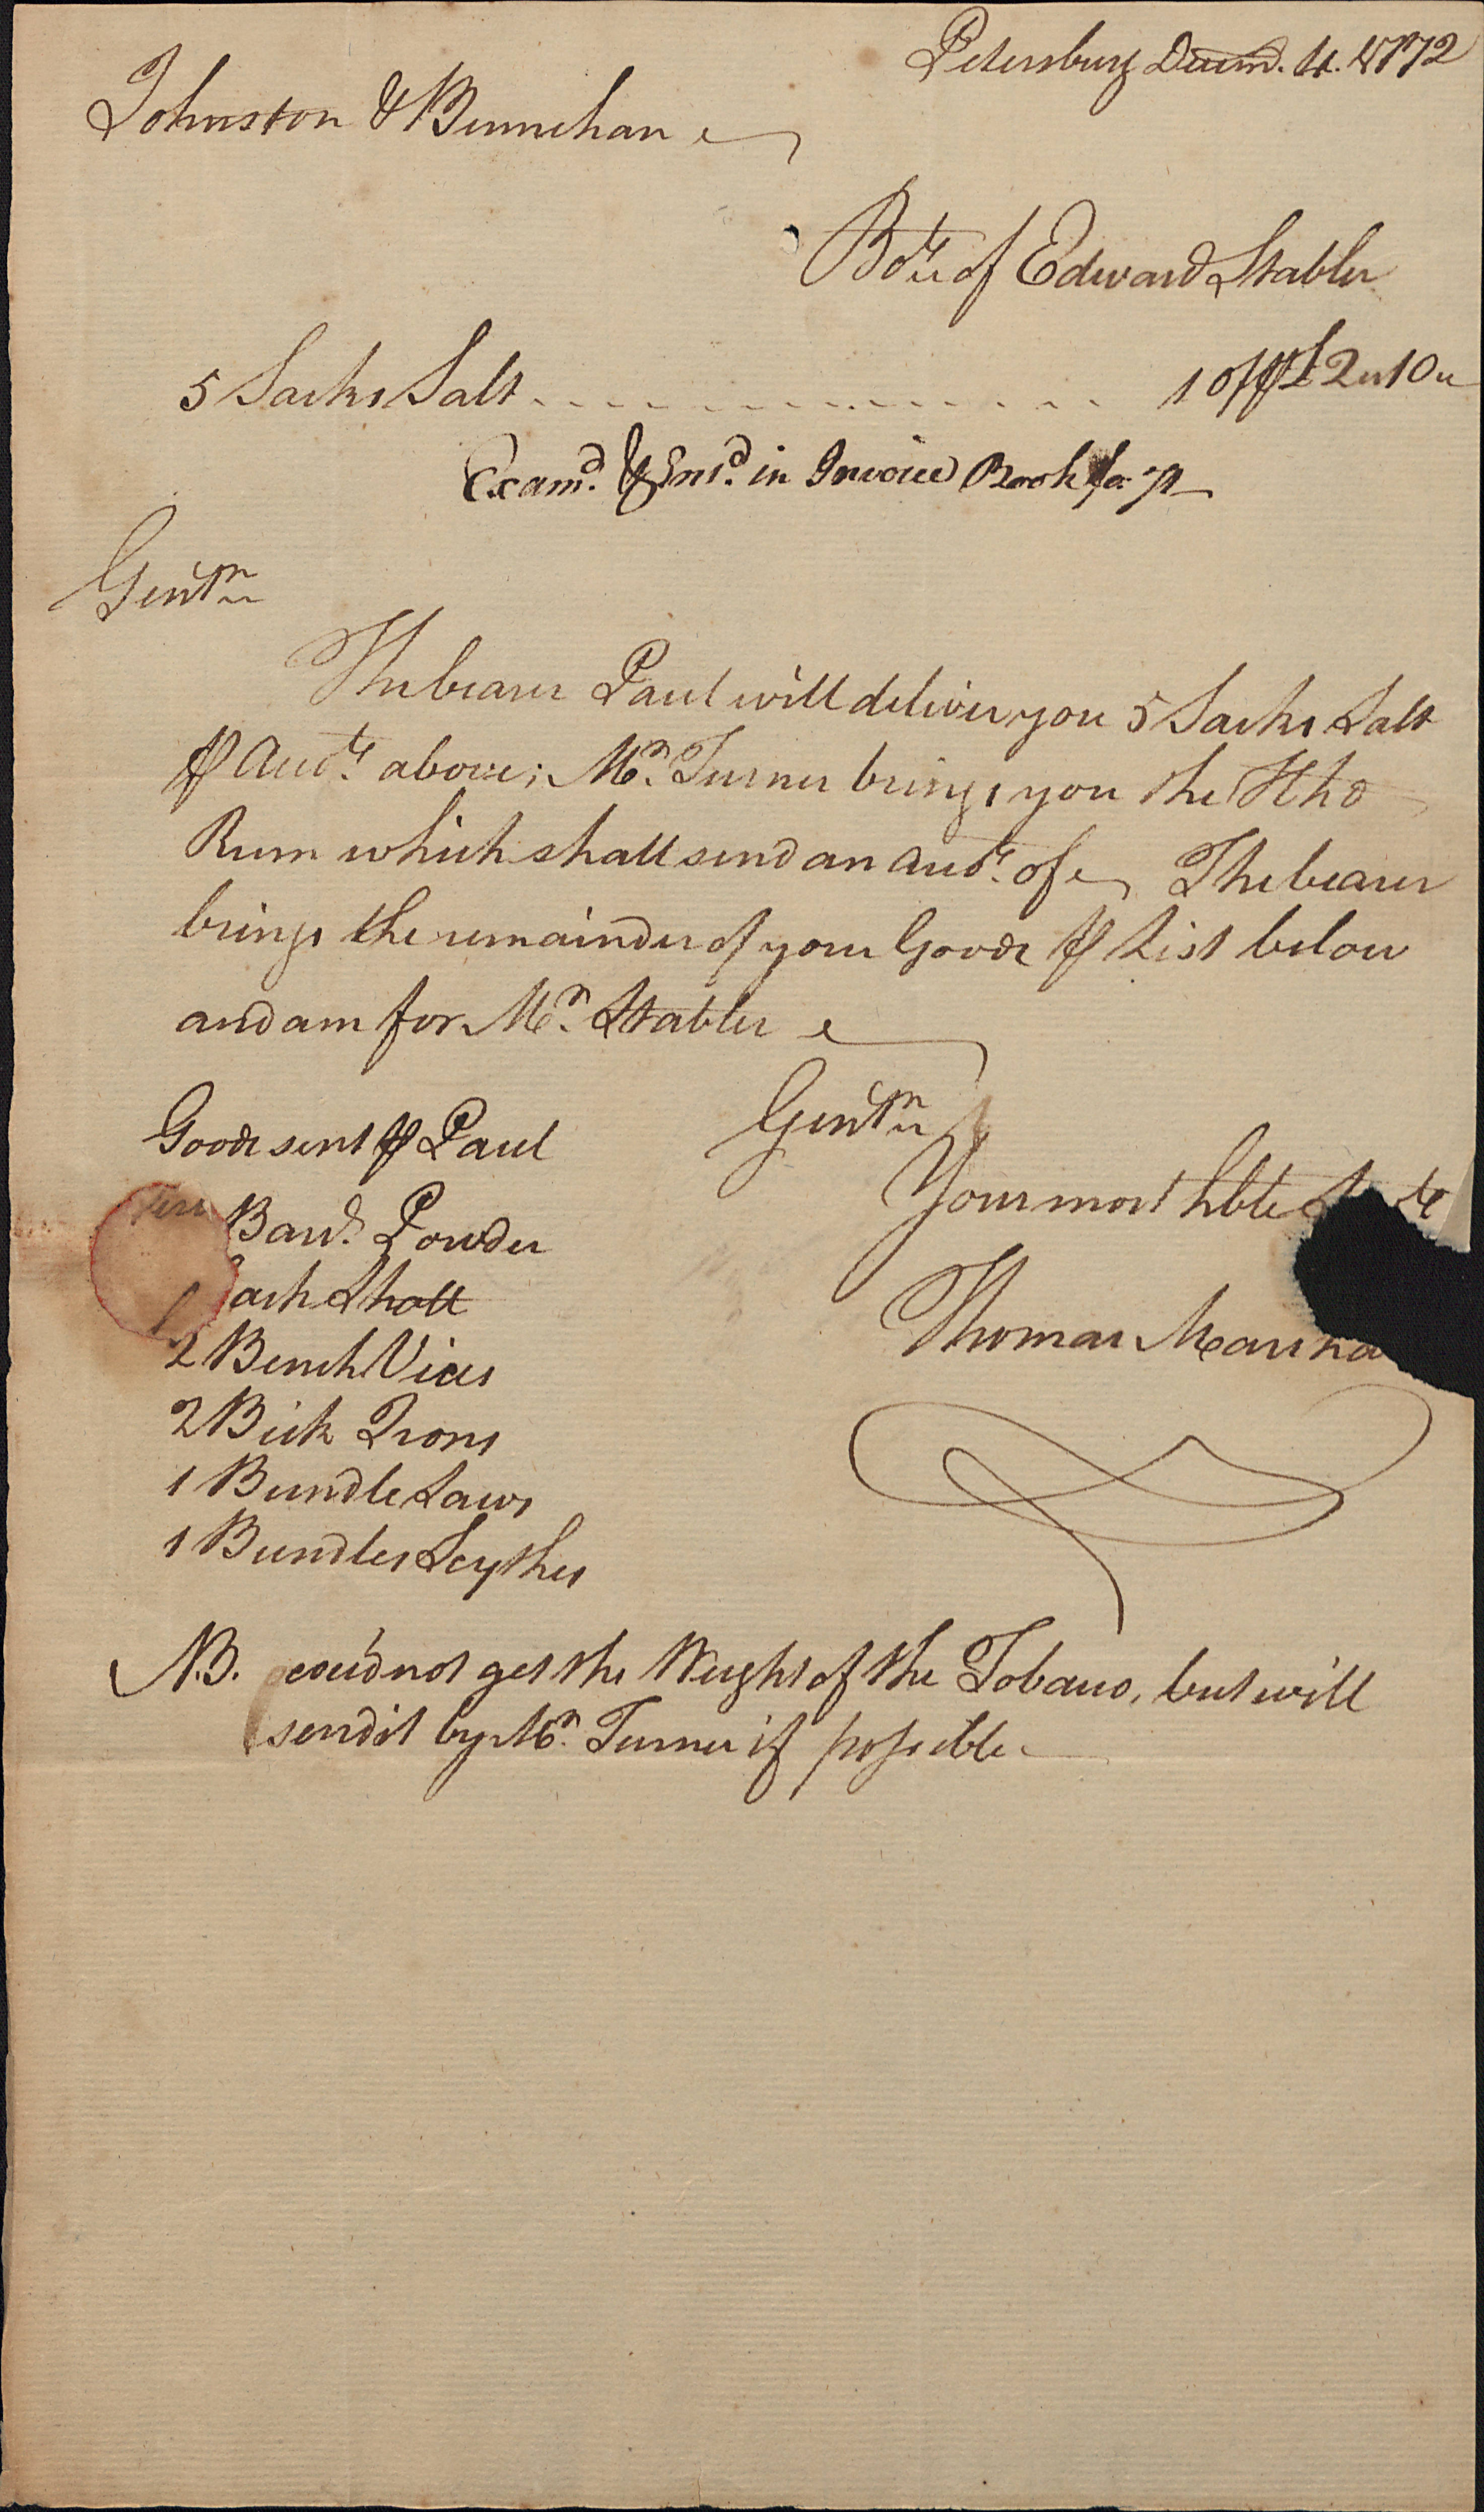 Petersburg Decem.r 4. 1772
Johnston & Bennehan
Bo.t of Edward Stabler
5 Sacks Salt 10/ ⅌ £2"10"
Exam.d & Ent.d in Invoice Book fo. 71
Gent.n
The bearer Paul will deliver you 5 Sacks Salt
⅌ Acco.t above; M.r Turner brings you the Hhd
Rum which shall send an acco.t of The bearer
brings the remainder of your Goods ⅌ List below
and am for M.r Stabler
Gent.n
Your most hble
Thomas
Goods sent ⅌ Paul
Barr.l Powder
Shott
2 Bench Vices
2 Bick Irons
1 Bundle Saws
1 Bundles Scythes
N.B. cou'd not get the Weight of the Tobacco, but will
send it by M.r Turner if possible